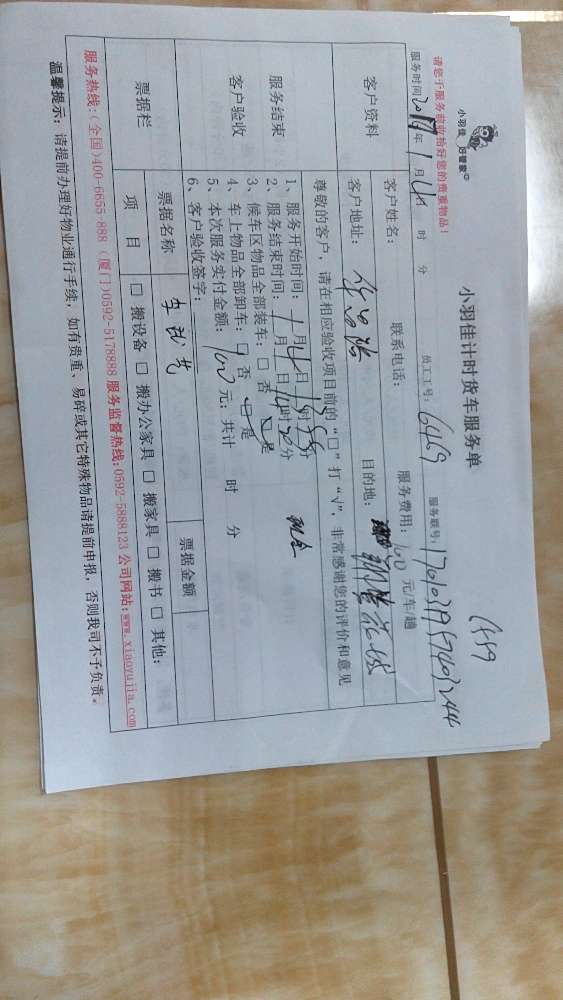 小羽佳 好管家
小羽佳计时货车服务单
6469
请您于服务前收拾好您的贵重物品!
服务时间: 年 1 月 14 时 分 员工工号: 6469 服务联号:
客户资料
客户姓名: 联系电话: 服务费用: 100 元/车/趟
客户地址: 目的地:
服务结束
客户验收
尊敬的客户,请在相应验收项目前的“□”打“√”,非常感谢您的评价和意见
1、服务开始时间: 1 月 14 日 13 时 55 分
2、服务结束时间: 月 日 14 时 20 分
现金
3、候车区物品全部装车: □ 否 ☑ 是
4、车上物品全部卸车: □ 否 ☑ 是
5、本次服务实付金额: 100 元; 共计 时 分
6、客户验收签字:
票据栏
票据名称 票据金额
项 目 □ 搬设备 □ 搬办公家具 □ 搬家具 □ 搬书 □ 其他:
服务热线:(全国)400-6655-888 (厦门)0592-5178888 服务监督热线:0592-5888123 公司网站:www.xiaoyujia.com
温馨提示: 请提前办理好物业通行手续, 如有贵重、易碎或其它特殊物品请提前申报, 否则我司不予负责。